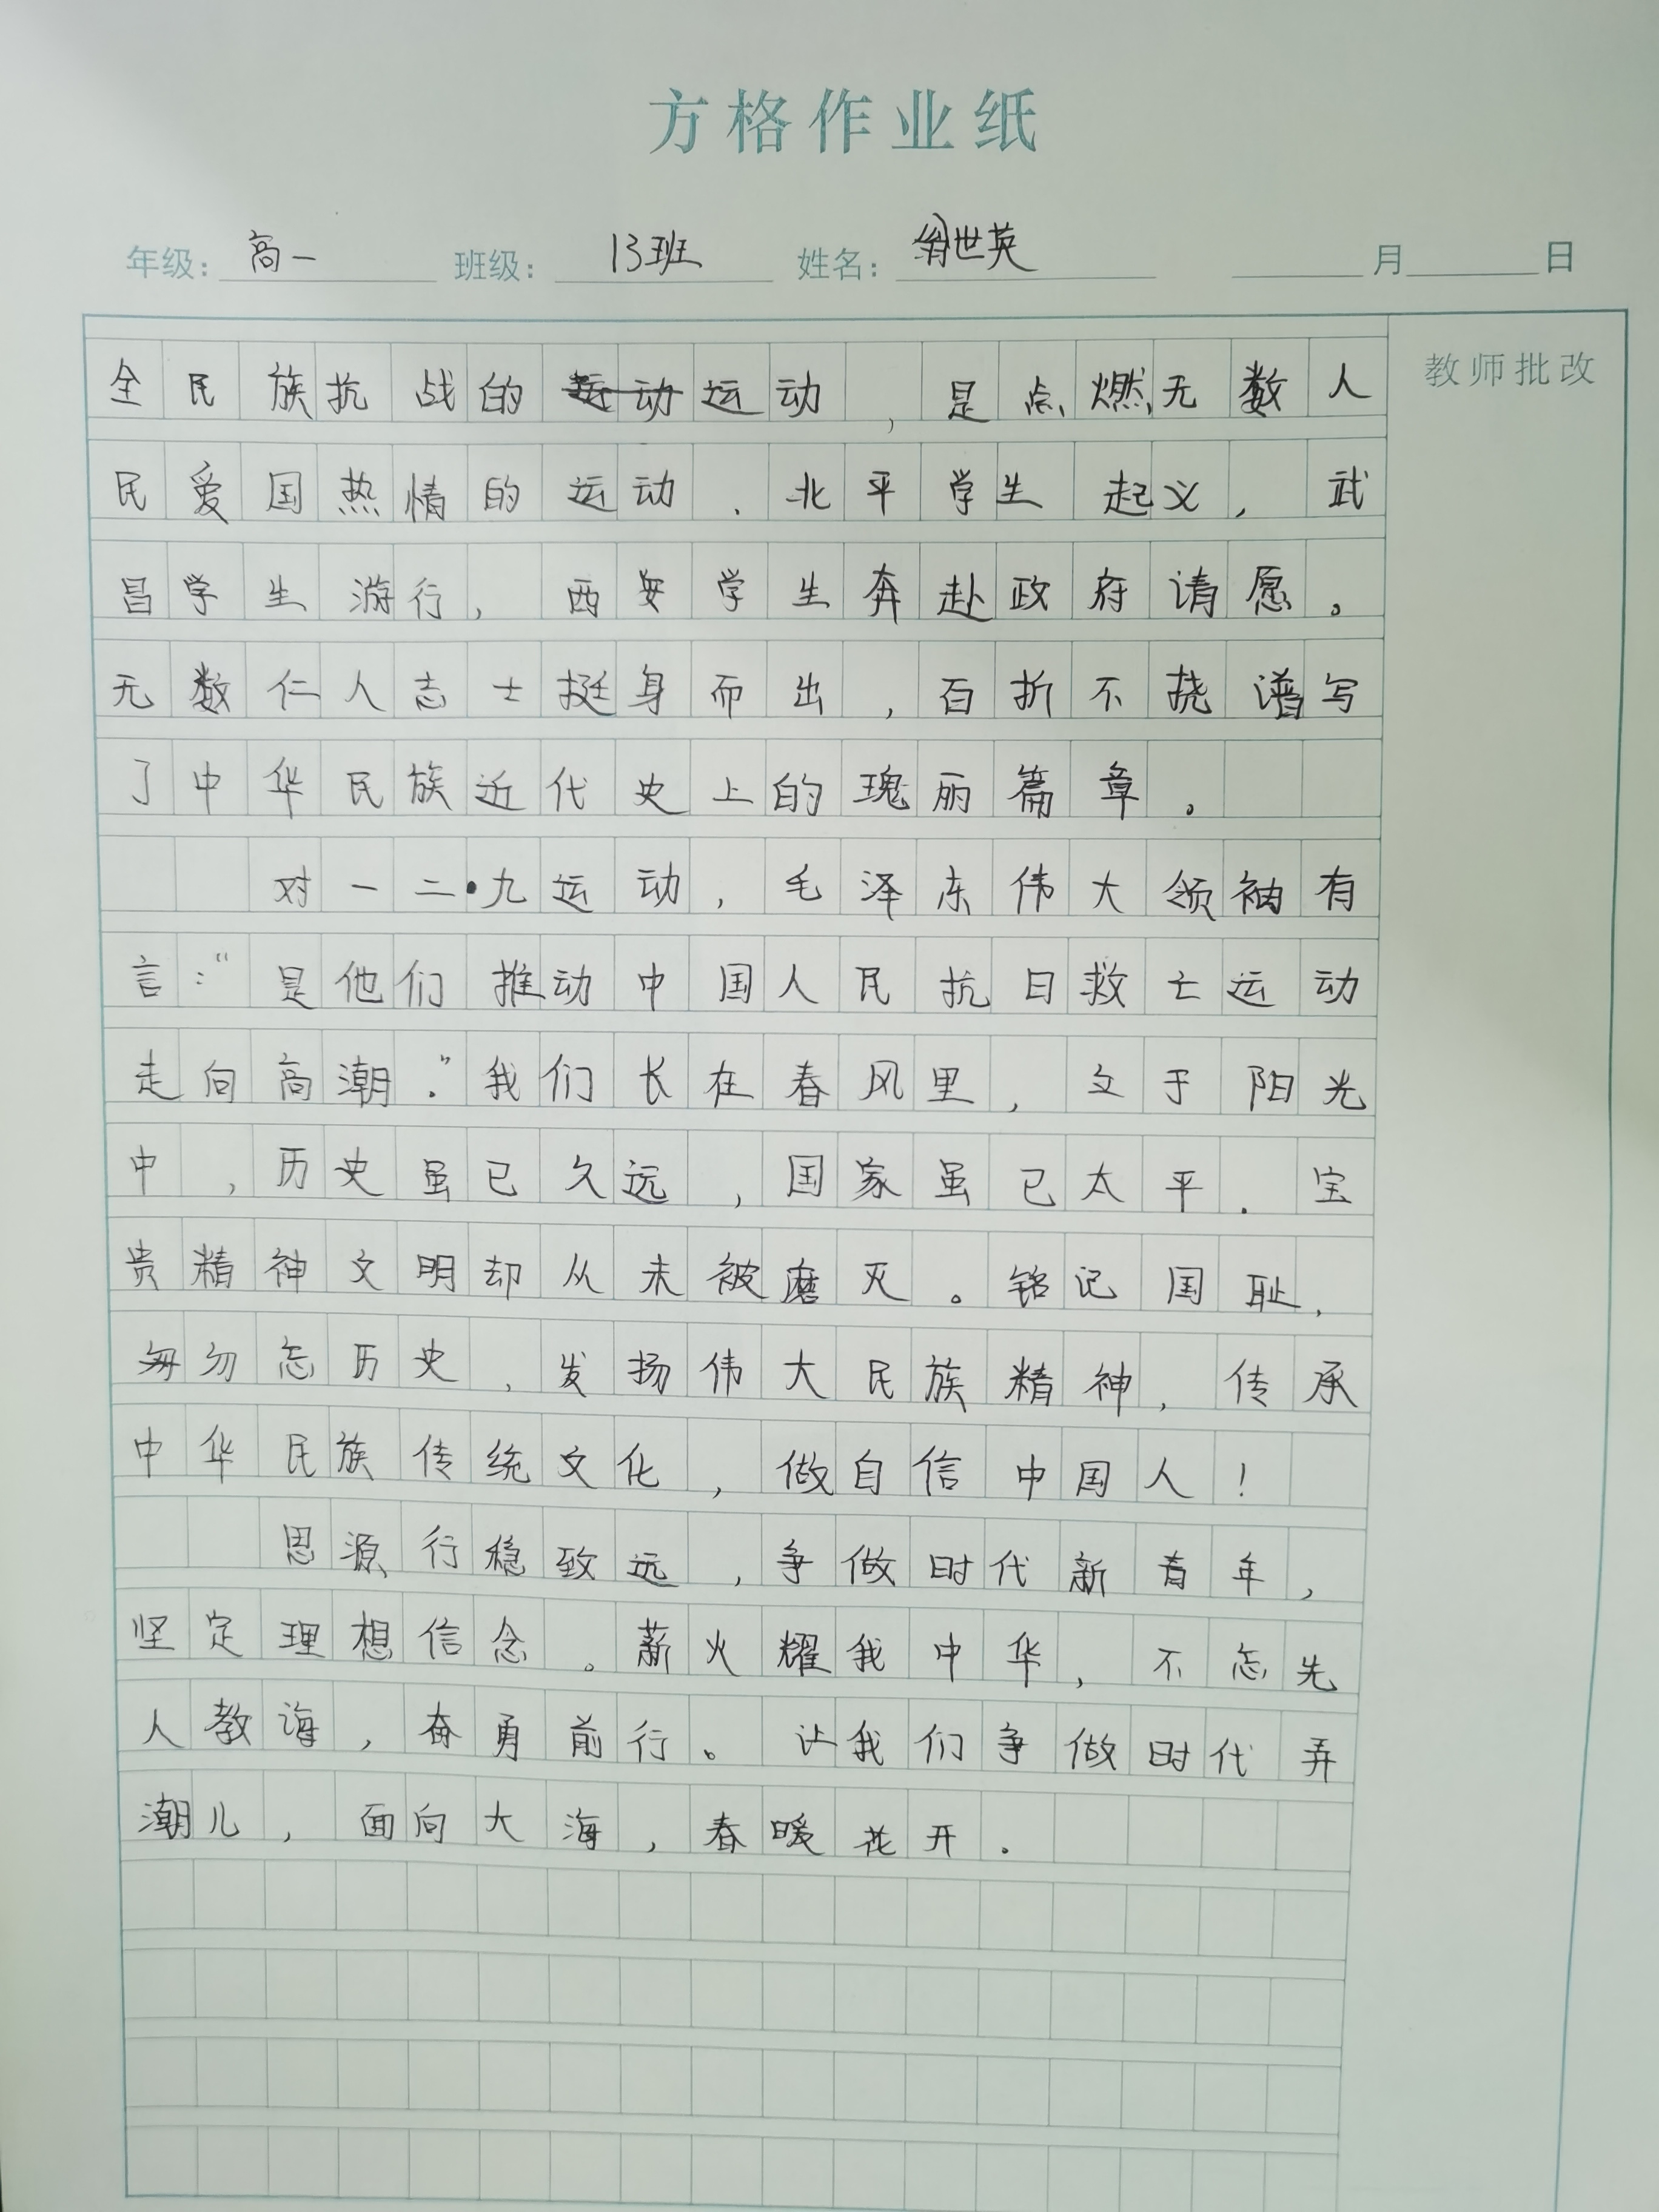 方格作业纸
年级：高一 班级：13班 姓名：翁世英 月 日
教师批改
全民族抗战的运动运动，是点燃无数人
民爱国热情的运动．北平学生起义，武
昌学生游行，西安学生奔赴政府请愿。
无数仁人志士挺身而出，百折不挠谱写
了中华民族近代史上的瑰丽篇章。
对一二·九运动，毛泽东伟大领袖有
言：“是他们推动中国人民抗日救亡运动
走向高潮．”我们长在春风里，立于阳光
中，历史虽已久远，国家虽已太平．宝
贵精神文明却从未被磨灭。铭记国耻，
勿忘历史，发扬伟大民族精神，传承
中华民族传统文化，做自信中国人！
思源行稳致远，争做时代新青年，
坚定理想信念。薪火耀我中华，不忘先
人教诲，奋勇前行。让我们争做时代弄
潮儿，面向大海，春暖花开．